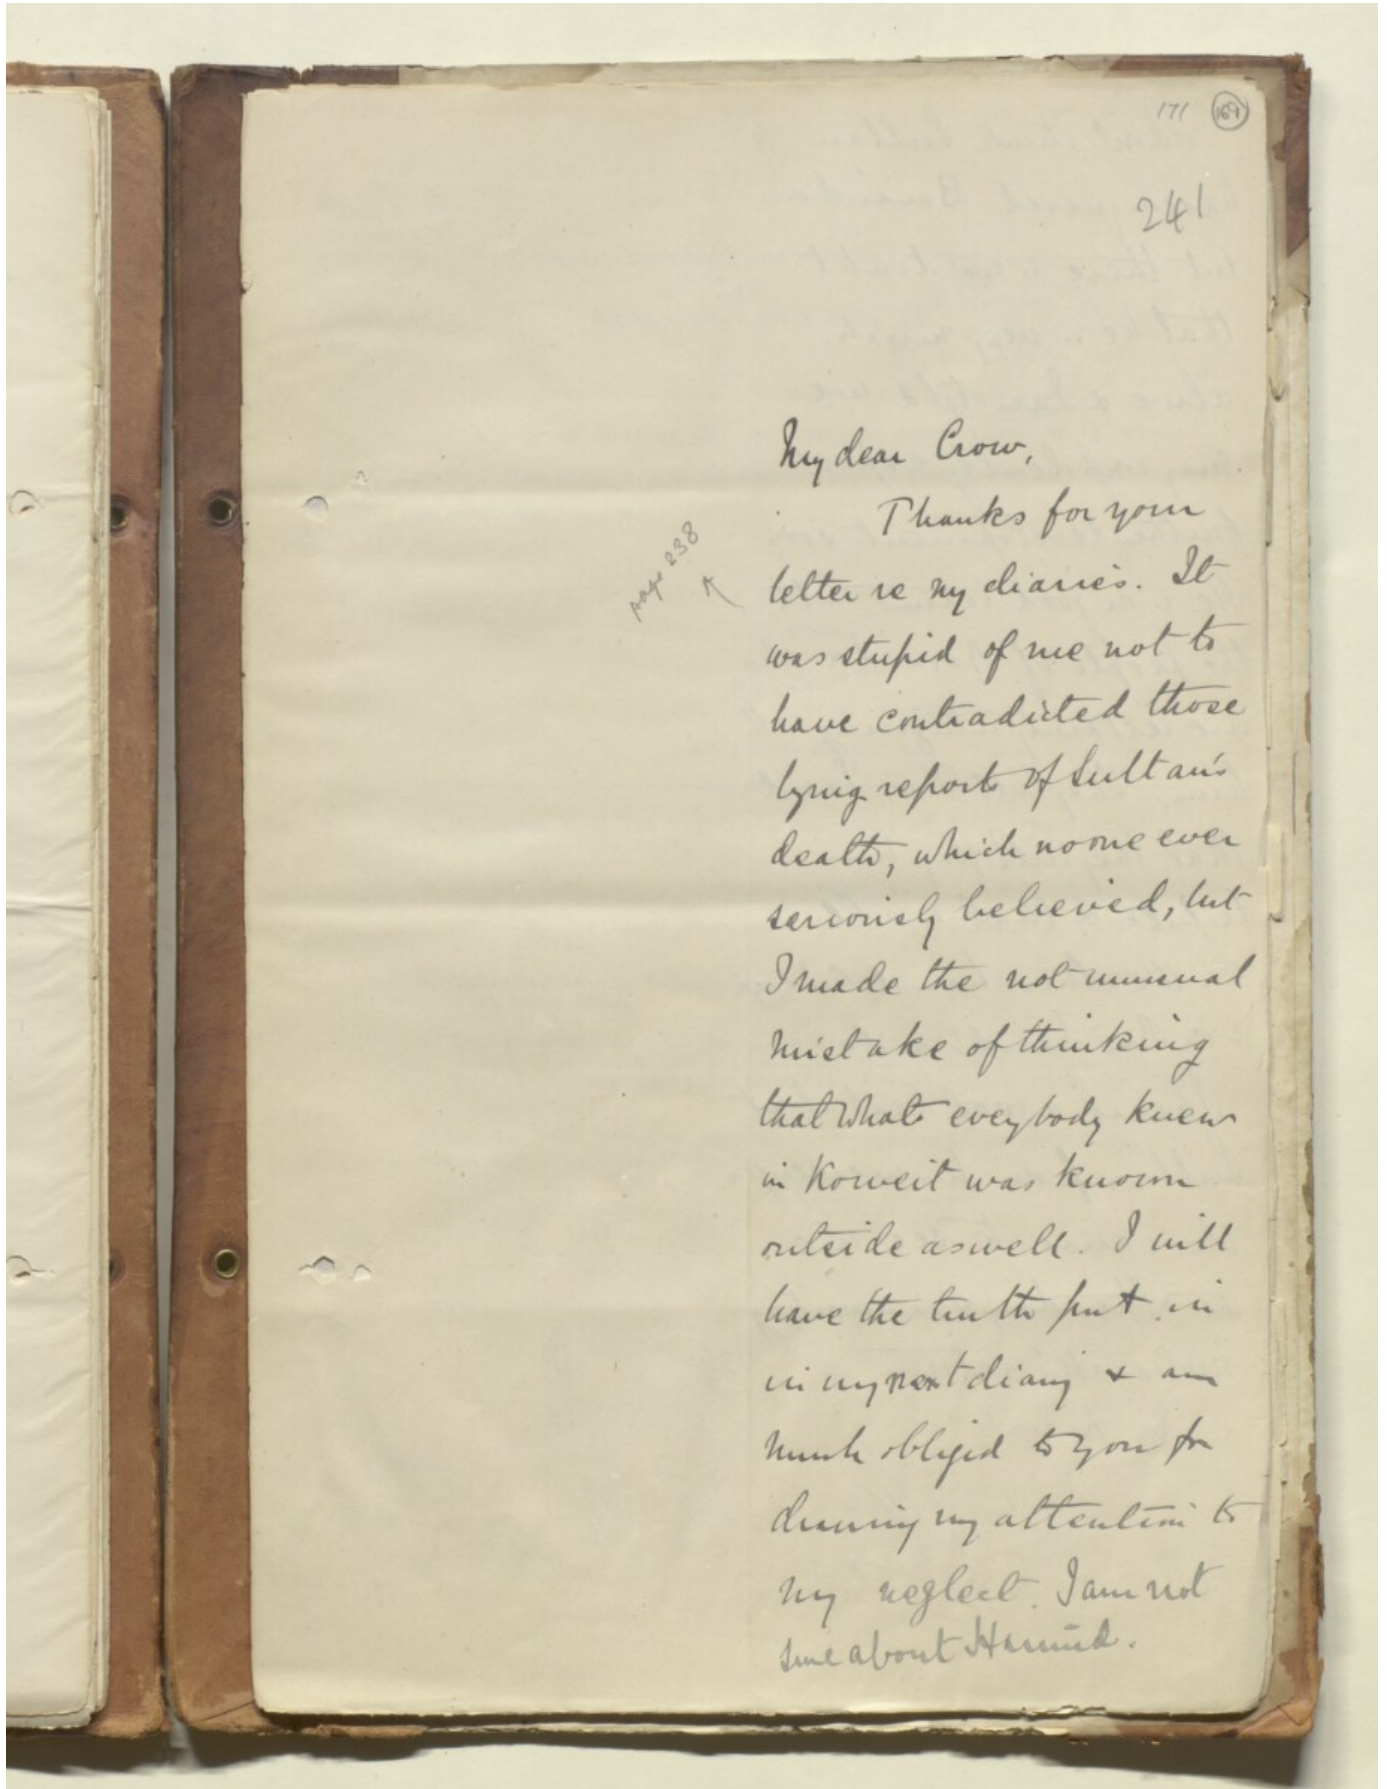 171 169
241
My dear Crow,
Thanks for your
page 238
letter re my diaries. It
was stupid of me not to
have contradicted those
lying reports of Sultan's
death, which no one ever
seriously believed, but
I made the not unusual
mistake of thinking
that what everybody knew
in Koweit was known
outside as well. I will
have the truth put in
in my next diary & am
much obliged to you for
drawing my attention to
my neglect. I am not
sure about Hamud.